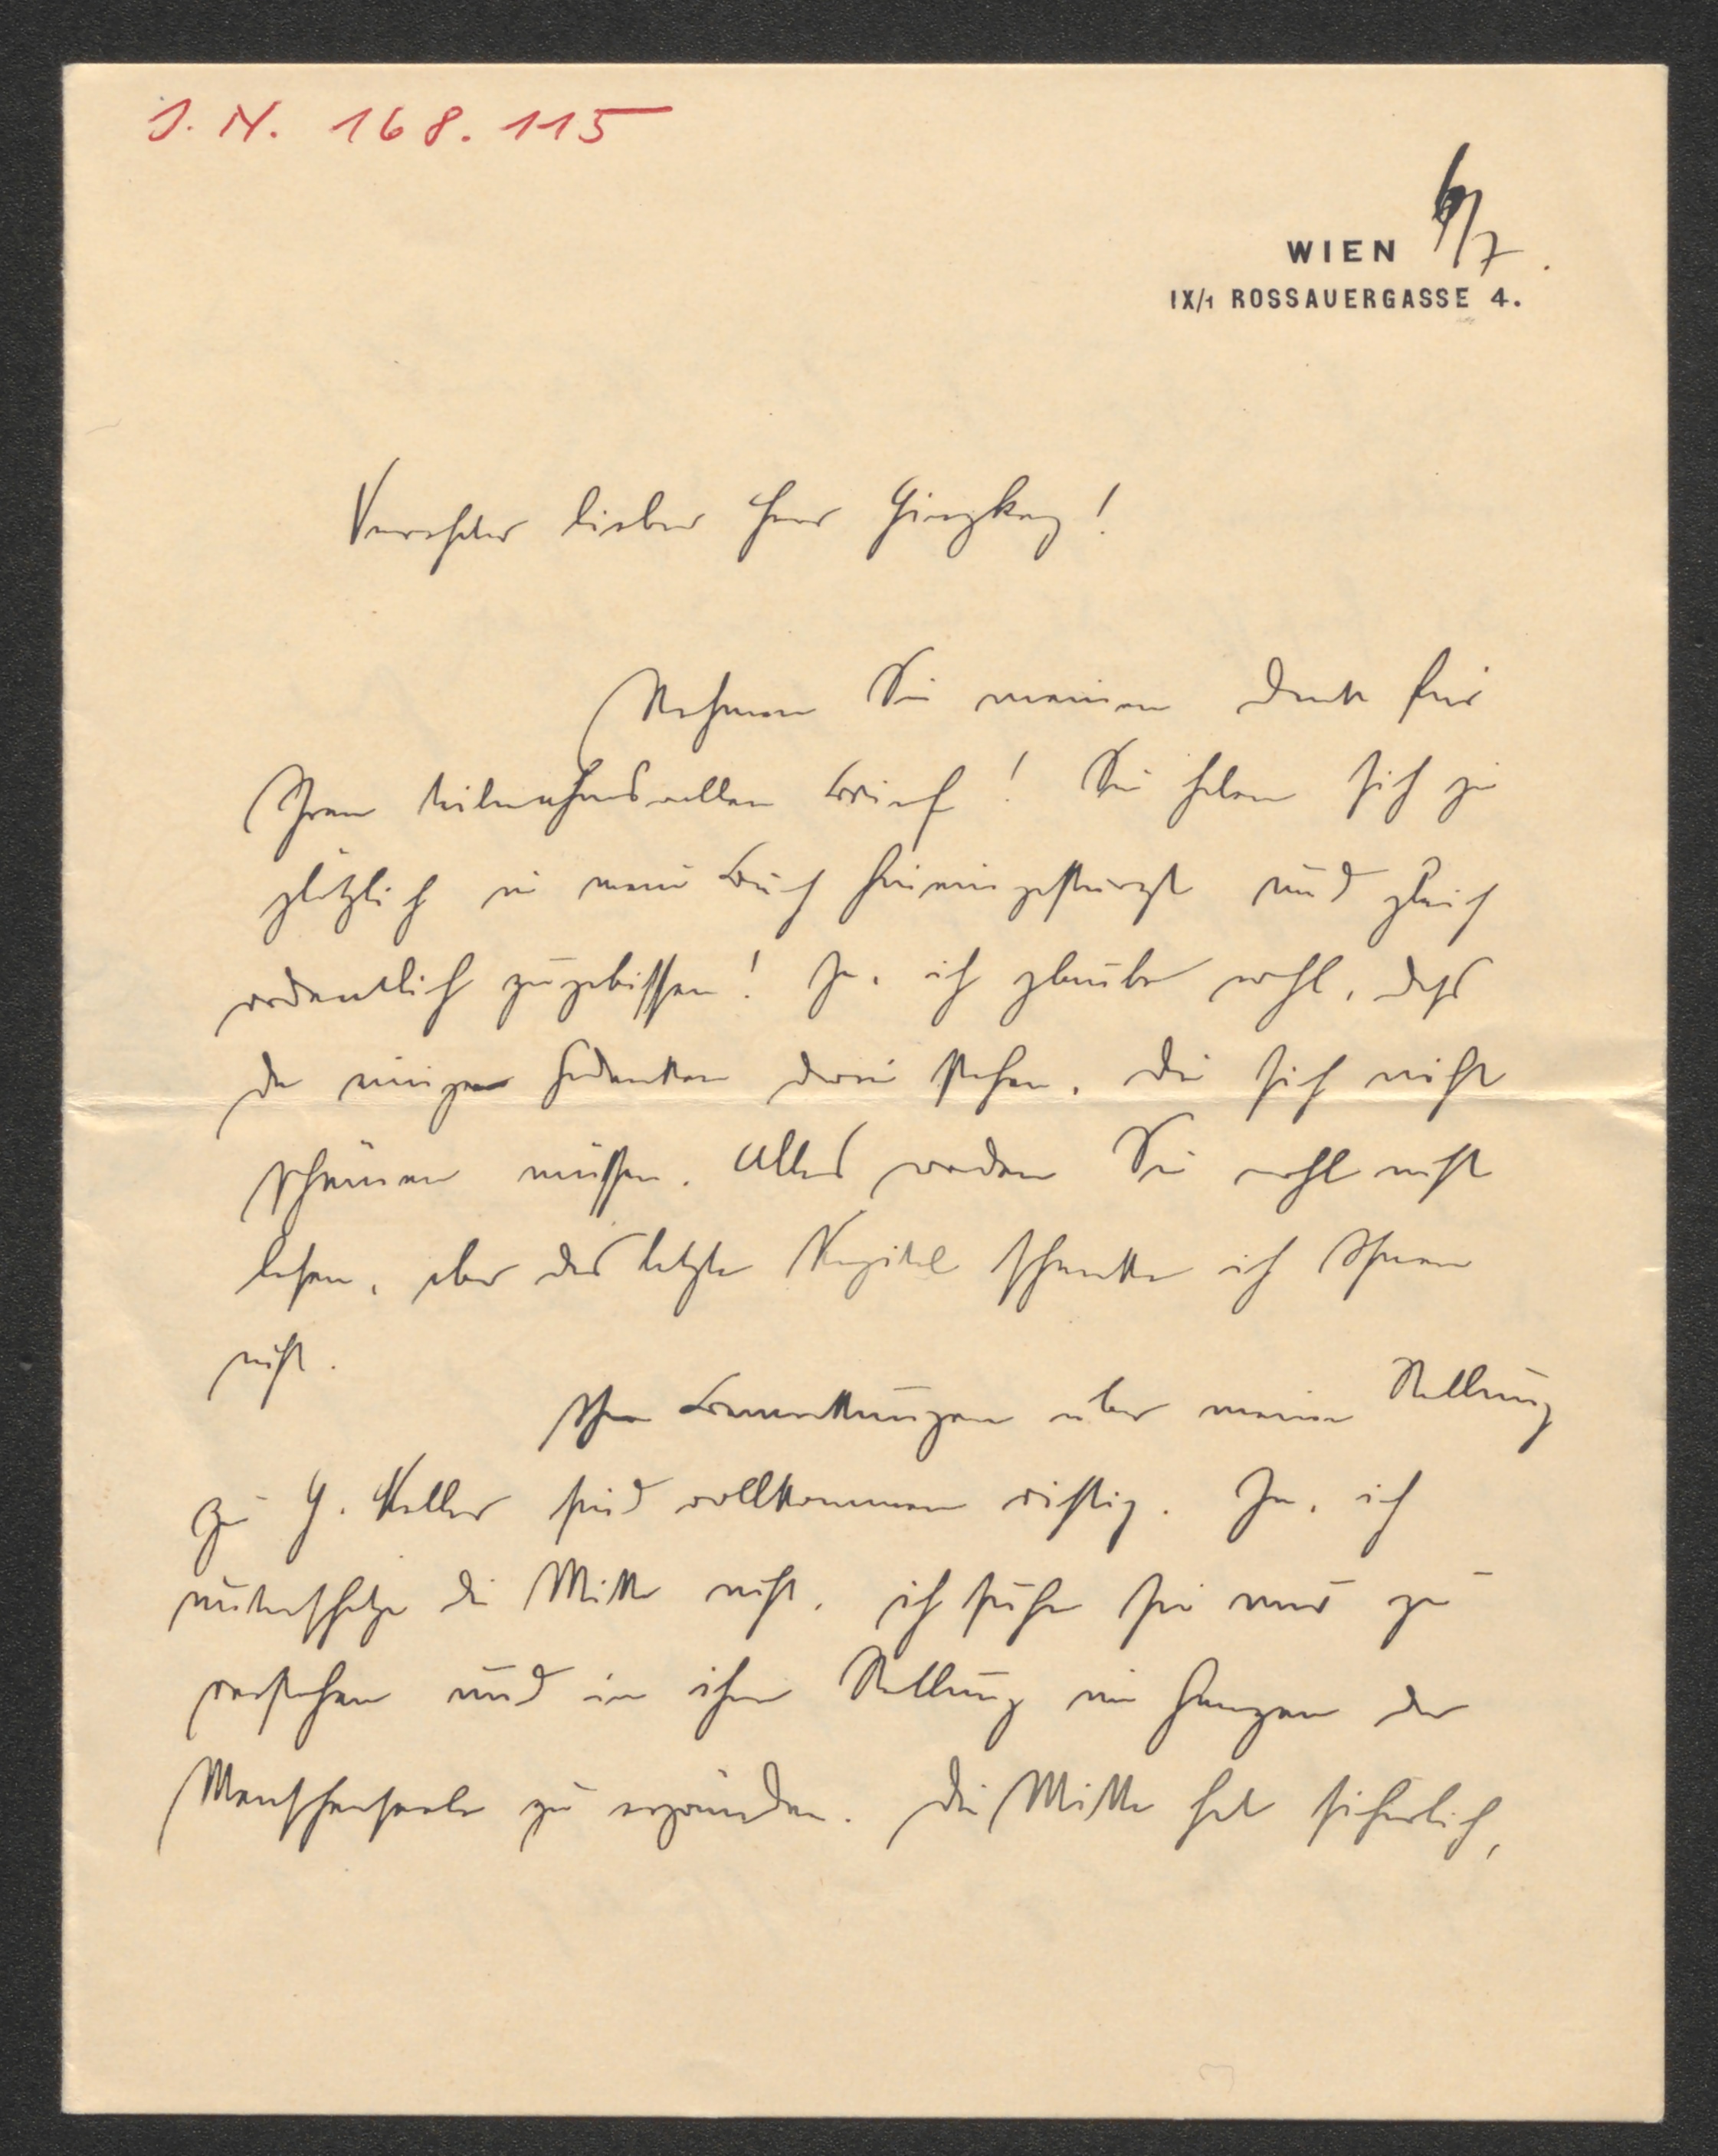 J. N. 168.115
6/7.
WIEN
IX/1 ROSSAUERGASSE 4.
Verehrter lieber Herr Ginzkey!
Nehmen Sie meinen Dank für
Ihren teilnahmsvollen Brief! Sie haben sich ja
plötzlich in mein Buch hineingestürzt und gleich
ordentlich zugebissen! Ja, ich glaube wohl, dass
da einige Gedanken drin stehen, die sich nicht
schämen müssen. Alles werden Sie wohl nicht
lesen, aber das letzte Kapitel schenke ich Ihnen
nicht.
Ihre Bemerkungen über meine Stellung
zu G. Keller sind vollkommen richtig. Ja, ich
unterschätze die Mitte nicht, ich suche sie nur zu
verstehen und in ihrer Stellung im Ganzen der
Menschenseele zu ergründen. Die Mitte hat sicherlich,